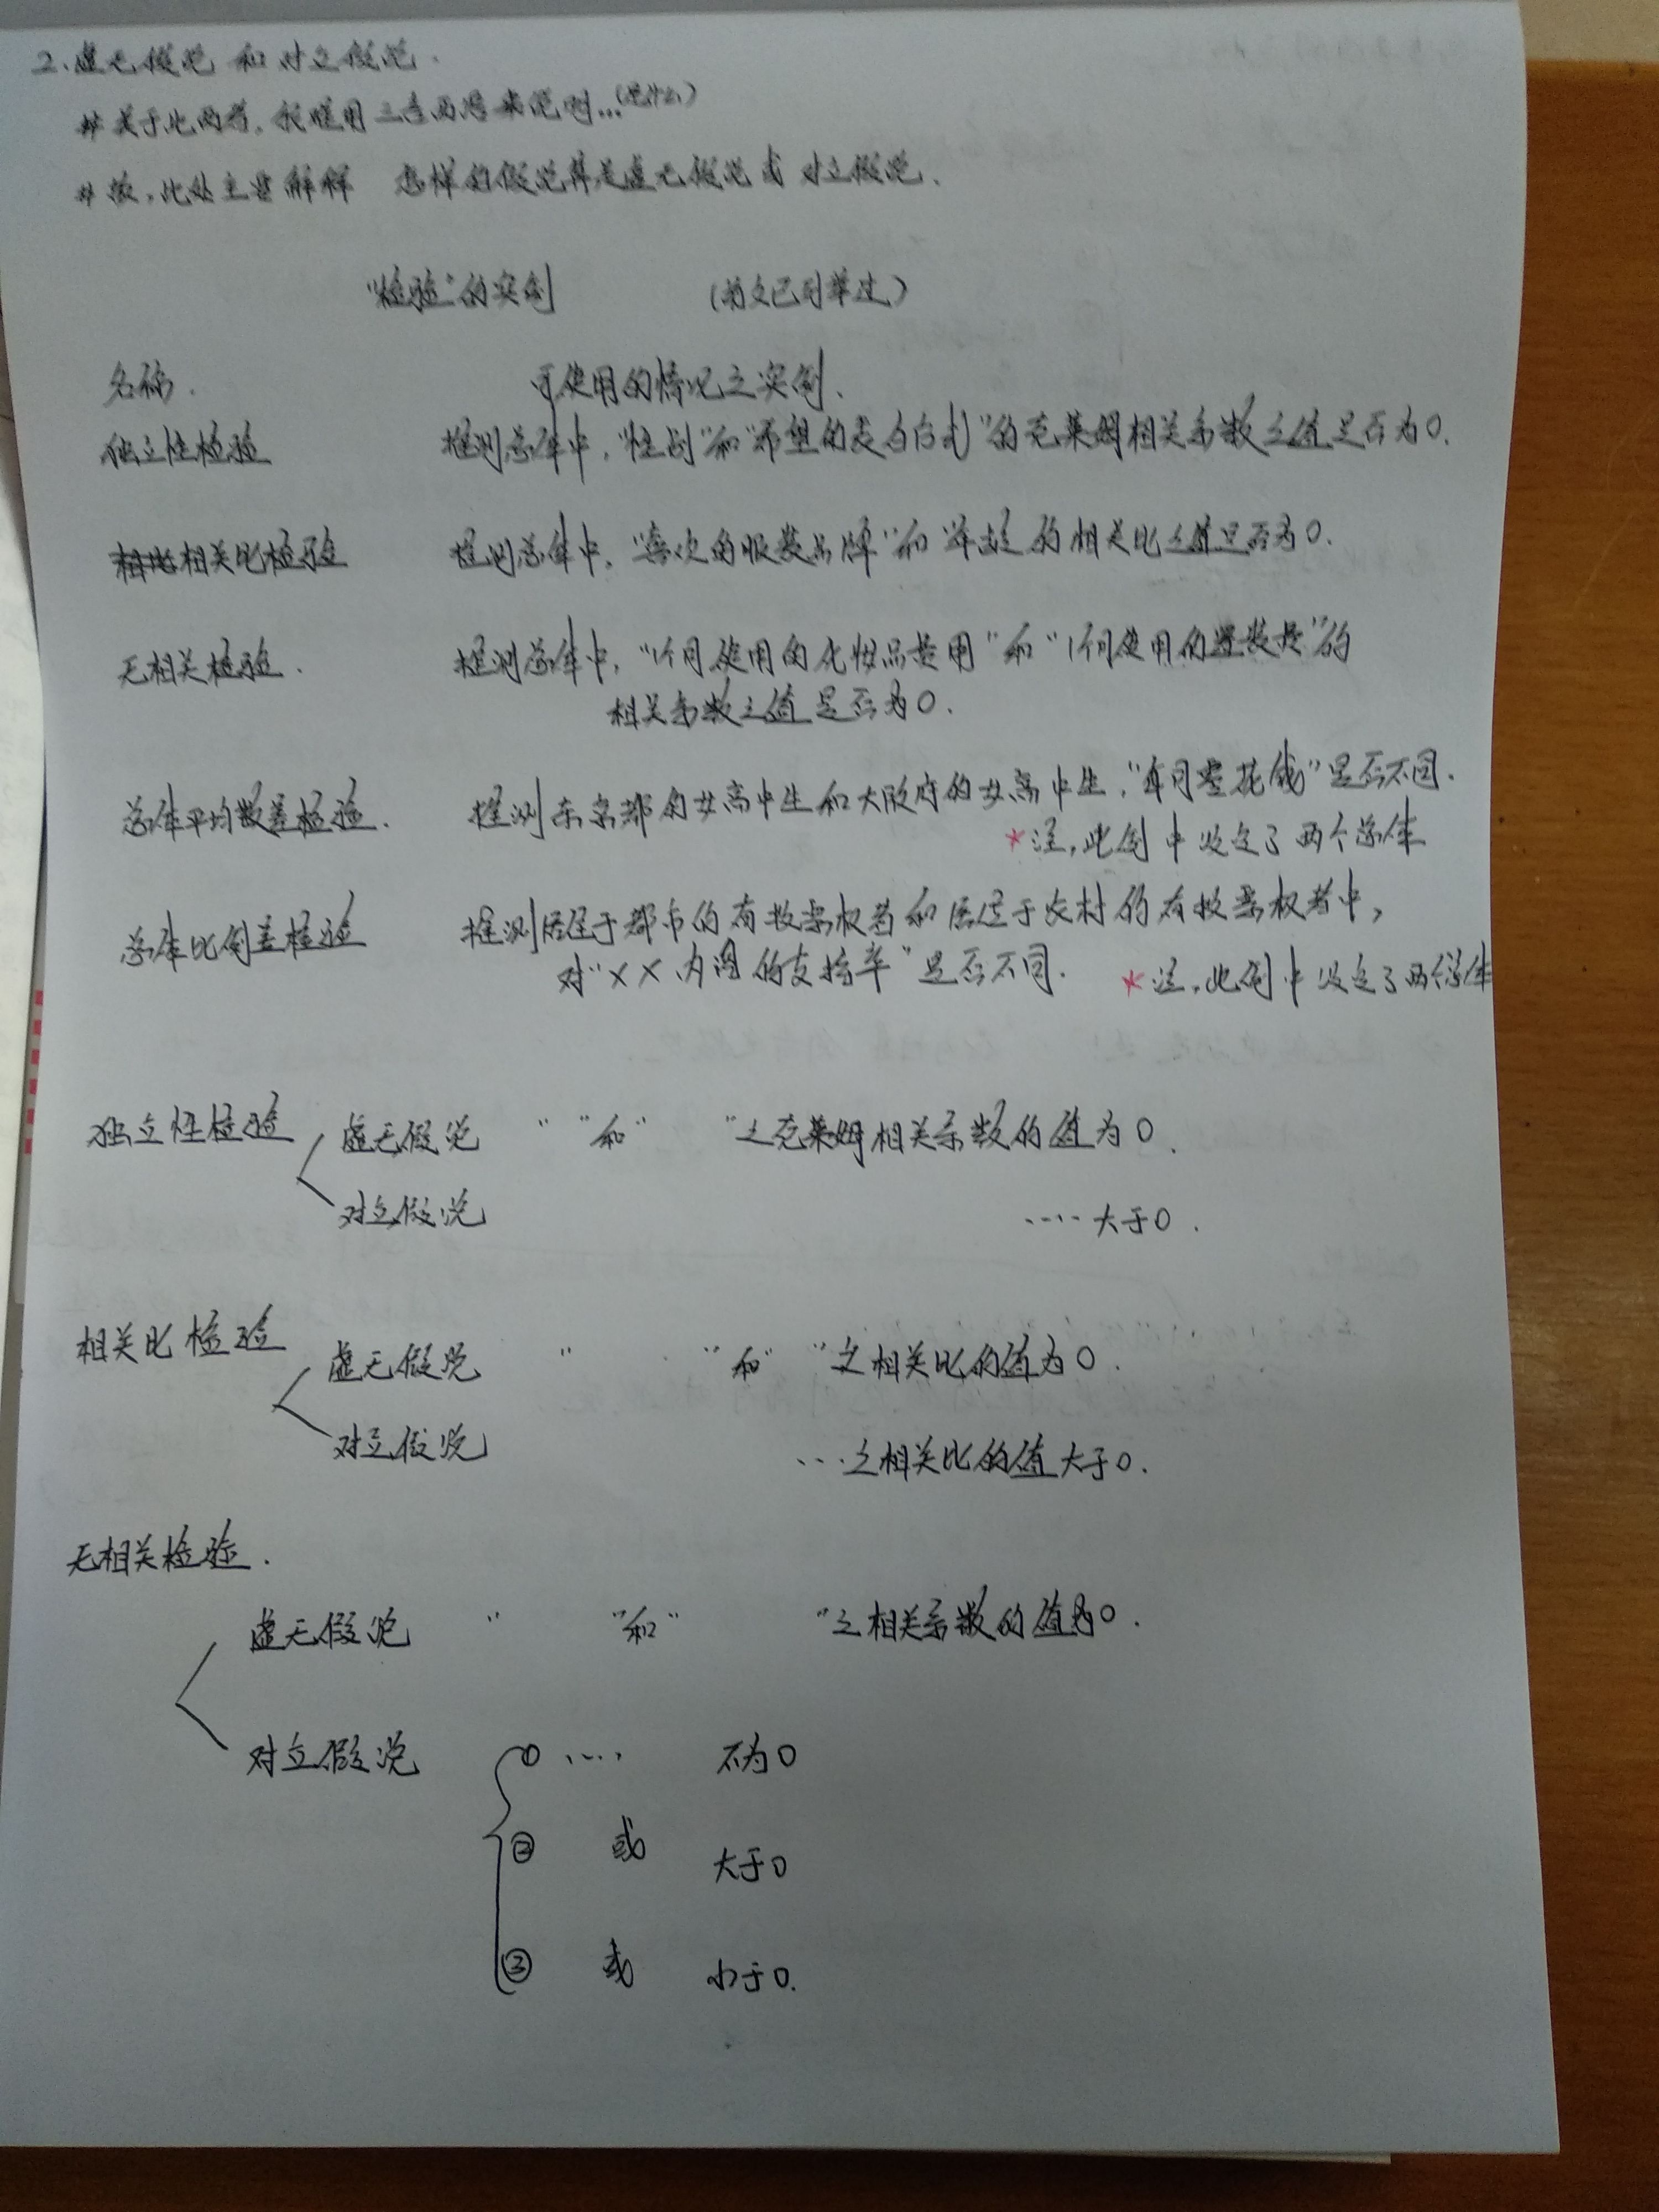 2.虚无假说 和 对立假说.
#关于此两者,很难用三言两语来说明...(是什么)
#故,此处主要解释 怎样的假说算是虚无假说或 对立假说.
“检验”的实例 (前文已列举过)
名称. 可使用的情况之实例.
独立性检验 推测总体中,“性别”和“希望的表白方式”的克莱姆相关系数之值是否为0.
相关比检验 推测总体中,“喜欢的服装品牌”和“年龄”的相关比之值是否为0.
无相关检验. 推测总体中,“1个月使用的化妆品费用”和“1个月使用的置装费”的
相关系数之值是否为0.
总体平均数差检验. 推测东京都的女高中生和大阪府的女高中生,“每月零花钱”是否不同.
*注,此例中设定了两个总体
总体比例差检验 推测居住于都市的有投票权者和居住于农村的有投票权者中,
对“××内阁的支持率”是否不同. *注,此例中设定了两个总体
独立性检验 虚无假说 “ ”和“ ”之克莱姆相关系数的值为0.
对立假说 ....大于0.
相关比检验 虚无假说 “ ”和“ ”之相关比的值为0.
对立假说 ...之相关比的值大于0.
无相关检验.
虚无假说 “ ”和“ ”之相关系数的值为0.
对立假说 ① .... 不为0
② 或 大于0
③ 或 小于0.